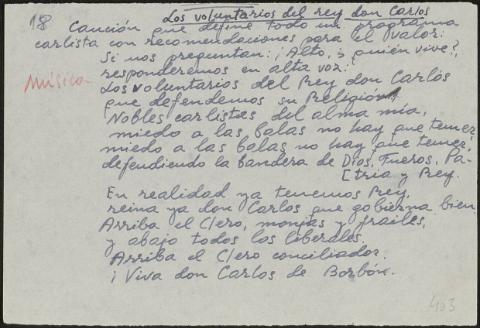 Los voluntarios del rey don Carlos
18 Canción que define todo un programa
carlista con recomendaciones para el valor:
Si nos preguntan: ¡Alto, ¿quién vive?,
responderemos en alta voz:
Música
Los voluntarios del Rey don Carlos
que defendemos su Religión
Nobles carlistas del alma mía,
miedo a las balas no hay que temer,
miedo a las balas no hay que temer,
defendiendo la bandera de Dios, Fueros, Pa-
[tria y Rey.
En realidad ya tenemos Rey,
reina ya don Carlos que gobierna bien.
Arriba el Clero, monjas y frailes,
y abajo todos los liberales.
Arriba el Clero conciliador.
¡Viva don Carlos de Borbón.
403